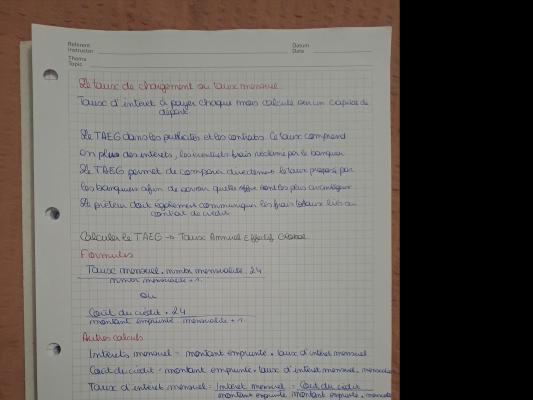 Referent Datum
Instructor Date
Thema
Topic
Le taux de chargement ou taux mensuel
Taux d'intérêt à payer chaque mois calculé sur un capital de
départ
Le TAEG dans les publicités et les contrats. Ce taux comprend
en plus des intérêts, les éventuels frais réclamé par le banquier
Le TAEG permet de comparer directement le taux proposé par
les banquiers afin de savoir quelle offre sont les plus avantageux
Le prêteur doit également communiquer les frais totaux liés au
contrat de crédit
Calculer le TAEG → Taux Annuel Effectif Global
Formules
Taux mensuel . nmbr mensualité . 24
nmbr mensualité + 1
ou
Coût du crédit . 24
montant emprunté mensualité + 1
Autres calculs
Intérêts mensuel = montant emprunté . taux d'intérêt mensuel
Coût du crédit = montant emprunté . taux d'intérêt mensuel .
Taux d'intérêt mensuel = Intérêt mensuel = Coût du crédit
montant emprunté montant emprunté .